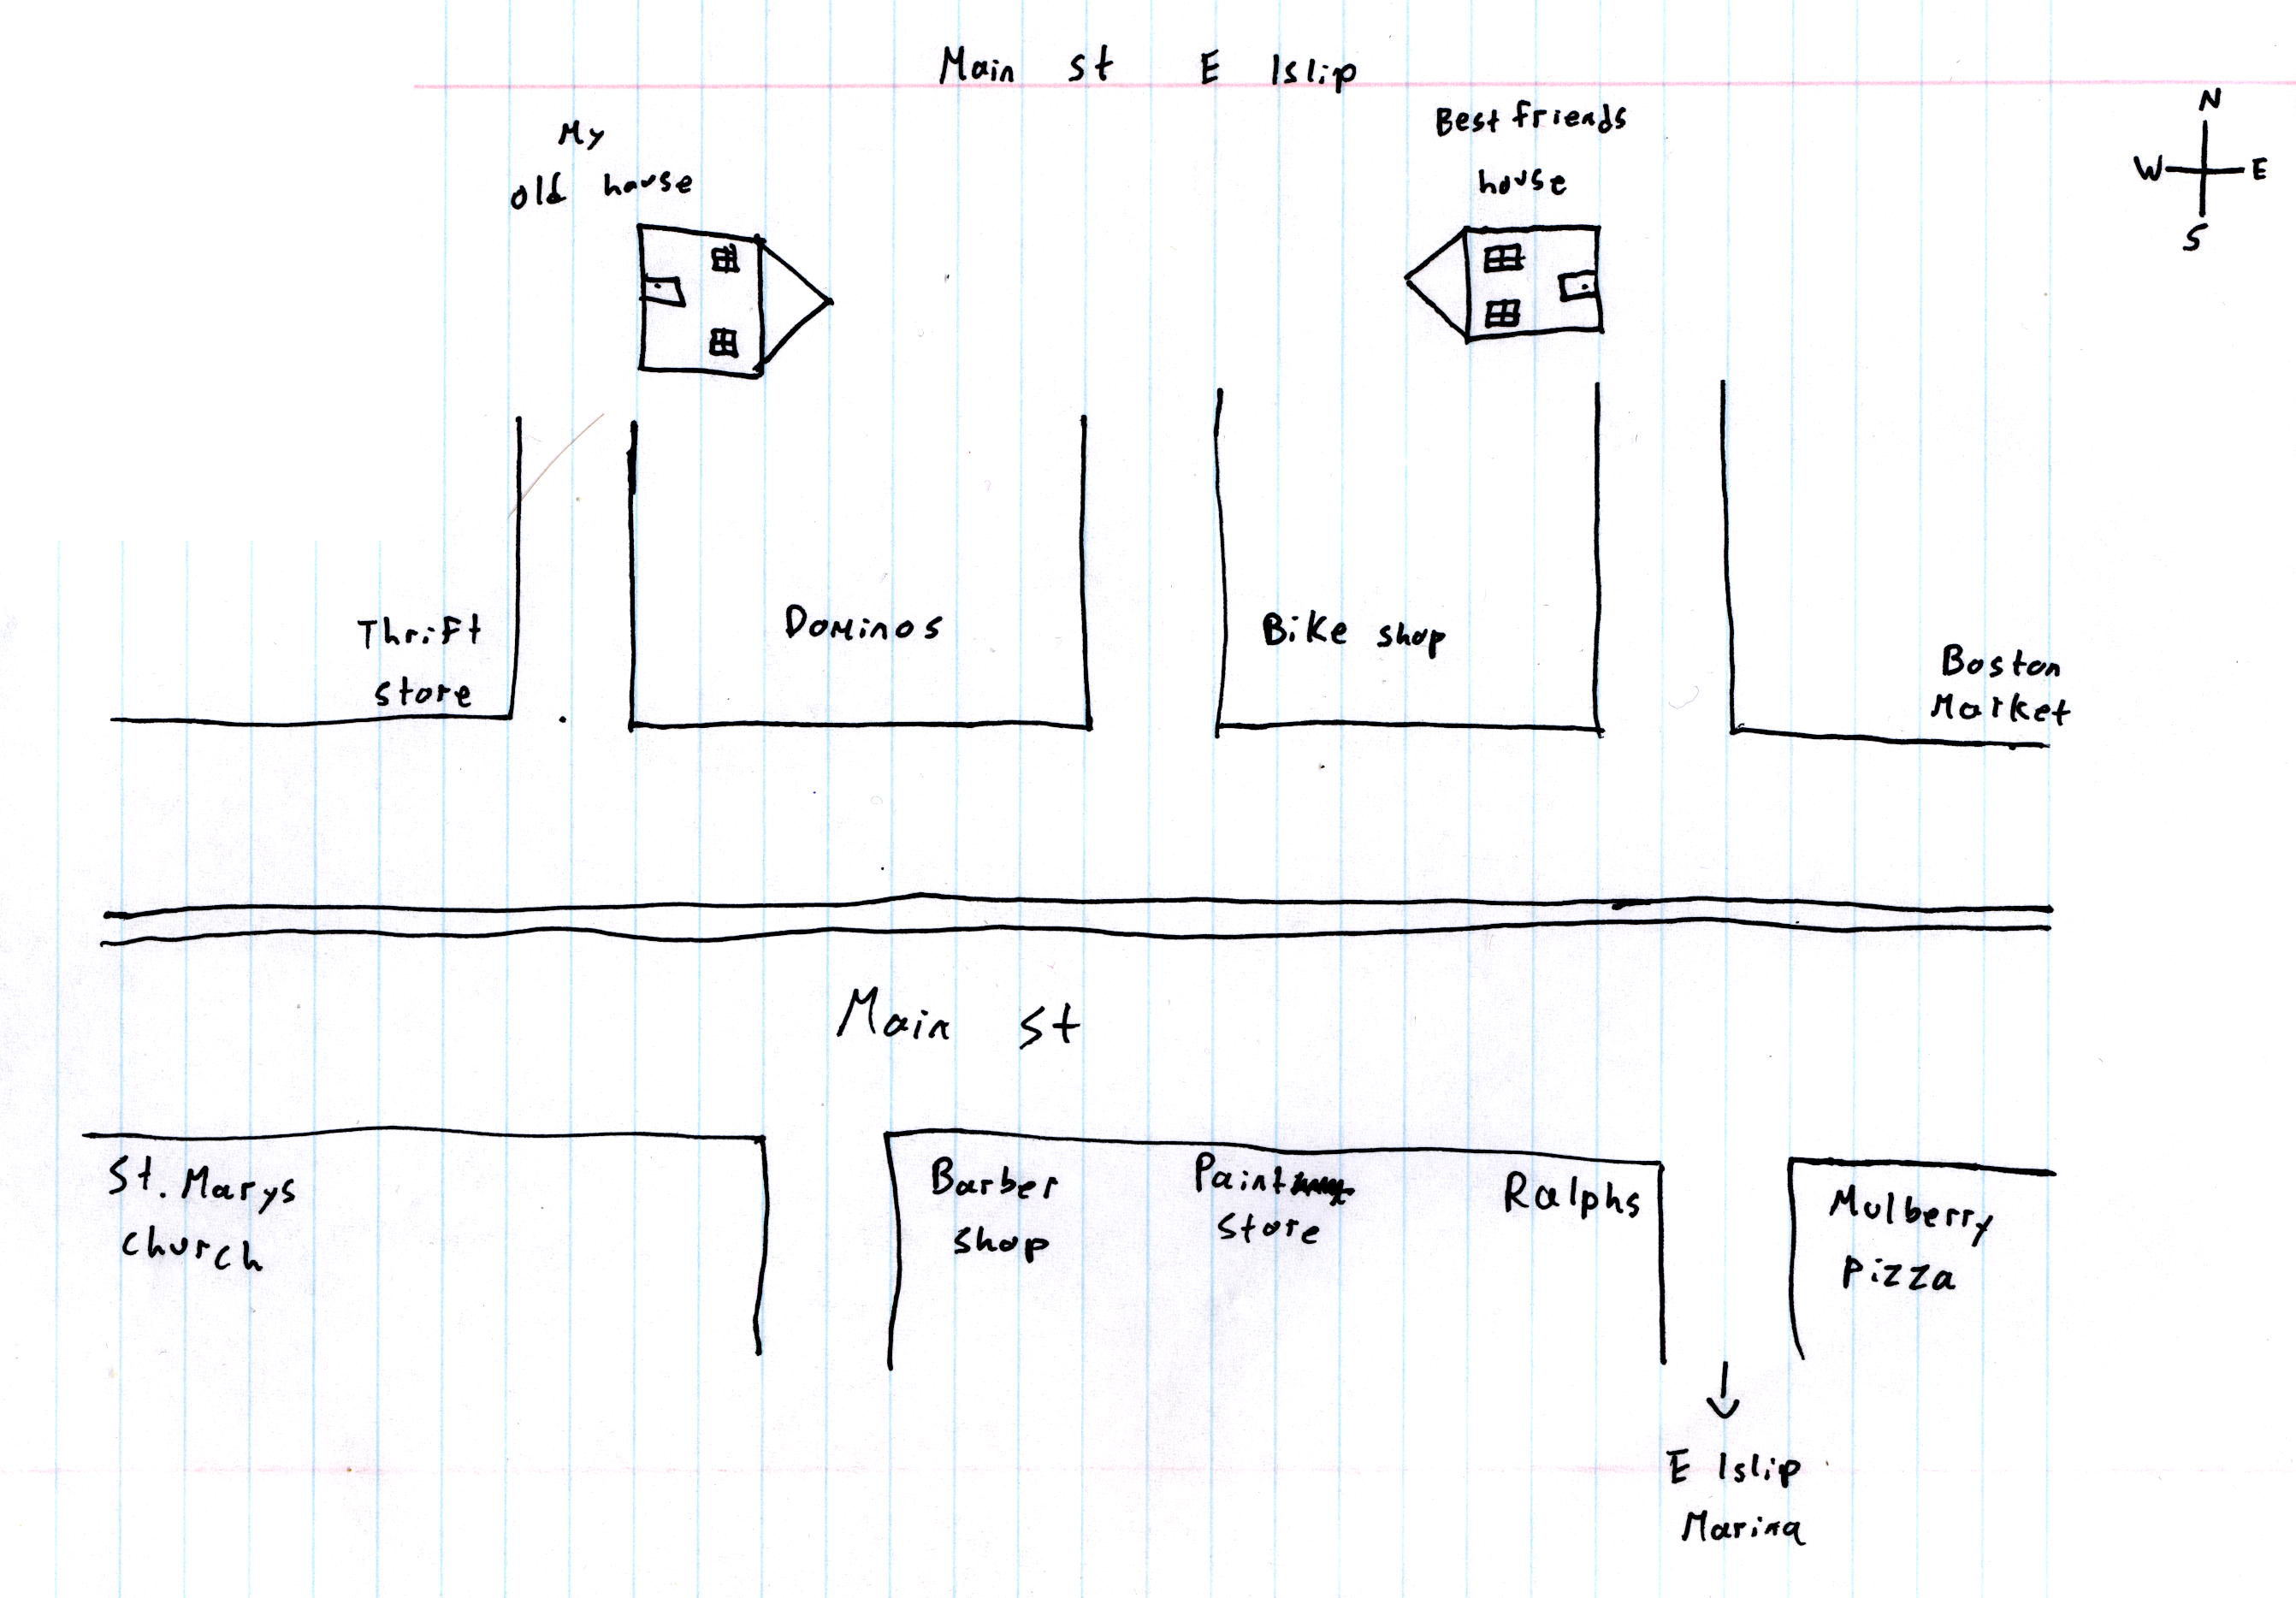 Main st E Islip
My
old house
Best friends
house
N
W E
S
Thrift
store
Dominos
Bike shop
Boston
Market
Main st
St. Marys
church
Barber
shop
Paint
store
Ralphs
Mulberry
Pizza
E Islip
Marina